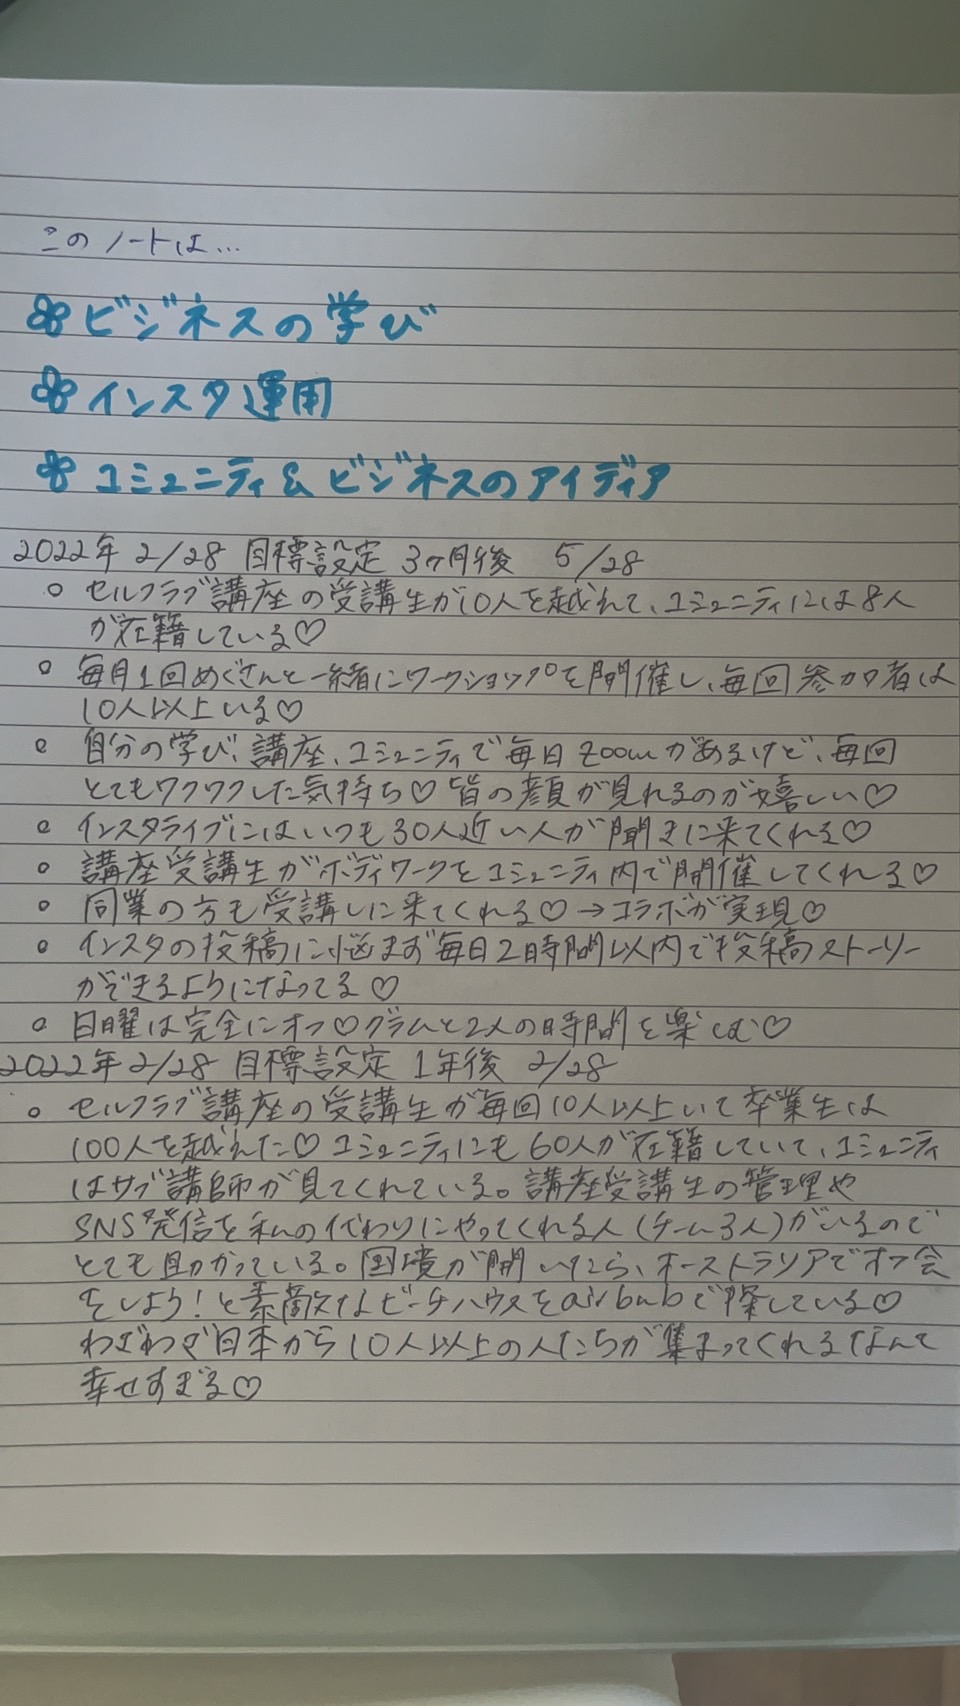 このノートは…
ビジネスの学び
インスタ運用
コミュニティ&ビジネスのアイディア
2022年 2/28 目標設定 3ヶ月後 5/28
○ セルフラブ講座の受講生が10人を越えて、コミュニティには8人
が在籍している♡
○ 毎月1回めぐさんと一緒にワークショップを開催し、毎回参加者は
10人以上いる♡
○ 自分の学び、講座、コミュニティで毎日zoomがあるけど、毎回
とてもワクワクした気持ち♡ 皆の顔が見れるのが嬉しい♡
○ インスタライブにはいつも30人近い人が聞きに来てくれる♡
○ 講座受講生がボディワークをコミュニティ内で開催してくれる♡
○ 同業の方も受講しに来てくれる♡→コラボが実現♡
○ インスタの投稿に悩まず毎日2時間以内で投稿ストーリー
ができるようになってる♡
○ 日曜は完全にオフ♡グラムと2人の時間を楽しむ♡
2022年2/28 目標設定 1年後 2/28
○ セルフラブ講座の受講生が毎回10人以上いて卒業生は
100人を越えた♡ コミュニティにも60人が在籍していて、コミュニティ
はサブ講師が見てくれている。講座受講生の管理や
SNS発信を私の代わりにやってくれる人(チーム3人)がいるので
とても助かっている。国境が開いたら、オーストラリアでオフ会
をしよう!と素敵なビーチハウスをairbnbで探している♡
わざわざ日本から10人以上の人たちが集まってくれるなんて
幸せすぎる♡